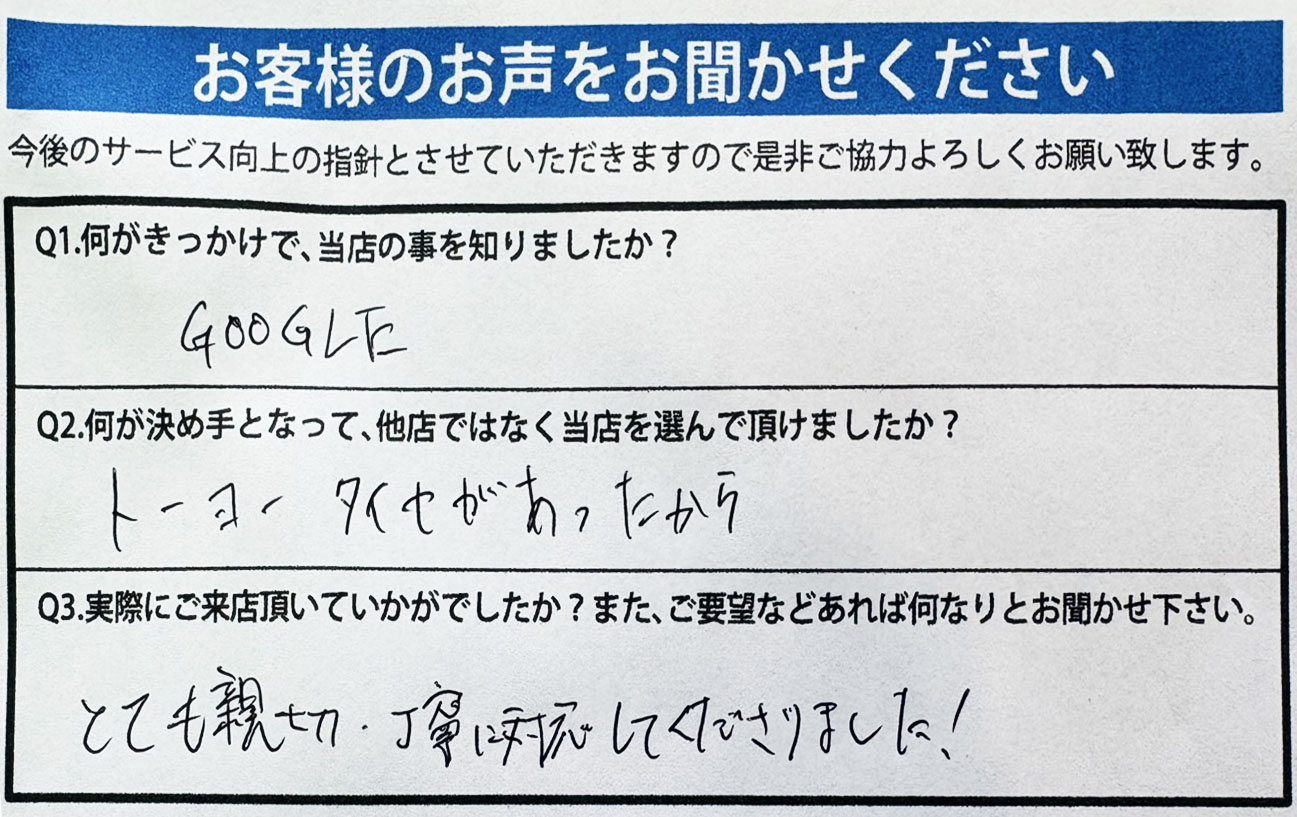 お客様のお声をお聞かせください
今後のサービス向上の指針とさせていただきますので是非ご協力よろしくお願い致します。
Q1.何がきっかけで、当店の事を知りましたか？
GOOGLE
Q2.何が決め手となって、他店ではなく当店を選んで頂けましたか？
トーヨー タイヤがあったから
Q3.実際にご来店頂いていかがでしたか？また、ご要望などあれば何なりとお聞かせ下さい。
とても親切・丁寧に対応してくださりました！